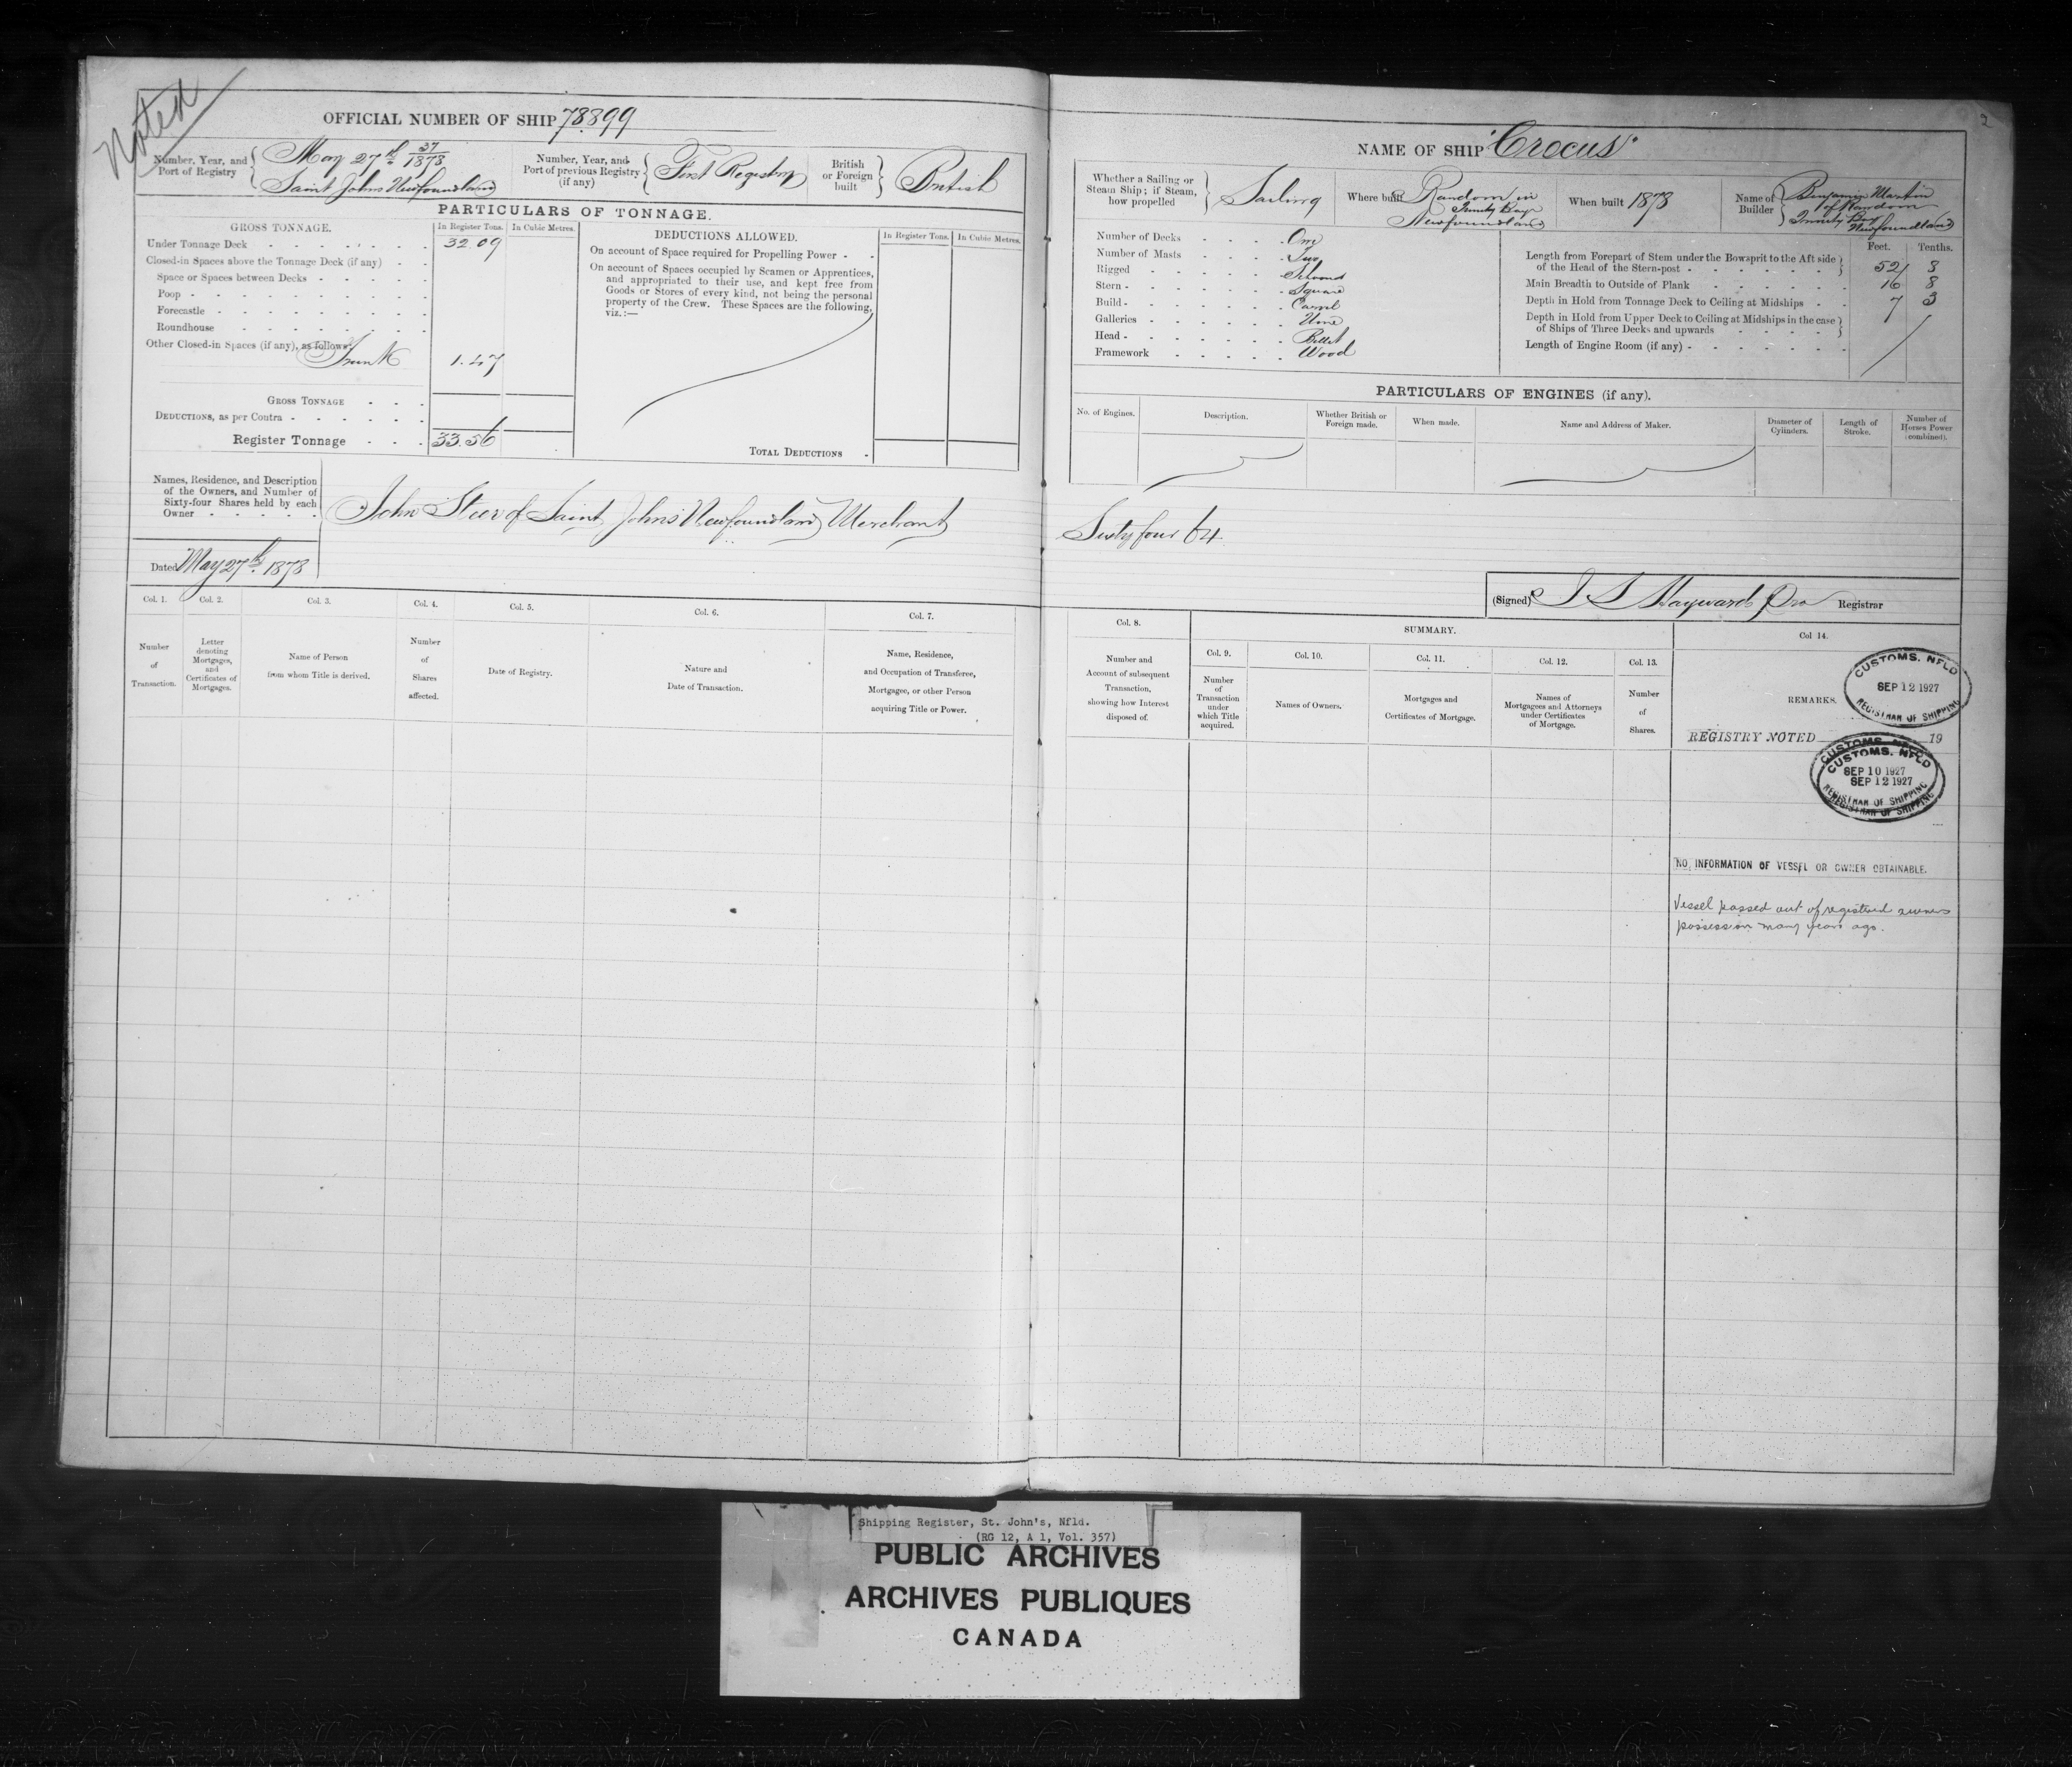 Noted
OFFICIAL NUMBER OF SHIP 78899
Number, Year, and Port of Registry
May 27th 37/1878
Saint Johns Newfoundland
Number, Year, and Port of previous Registry (if any)
First Registry
British or Foreign built
British
PARTICULARS OF TONNAGE.
GROSS TONNAGE.
In Register Tons.
In Cubic Metres.
Under Tonnage Deck 32.09
Closed-in Spaces above the Tonnage Deck (if any)
Space or Spaces between Decks
Poop
Forecastle
Roundhouse
Other Closed-in Spaces (if any), as follows:
Trunk 1.47
GROSS TONNAGE
DEDUCTIONS, as per Contra
Register Tonnage 33.56
DEDUCTIONS ALLOWED.
In Register Tons.
In Cubic Metres.
On account of Space required for Propelling Power
On account of Spaces occupied by Seamen or Apprentices,
and appropriated to their use, and kept free from
Goods or Stores of every kind, not being the personal
property of the Crew. These Spaces are the following,
viz.:—
TOTAL DEDUCTIONS
Names, Residence, and Description
of the Owners, and Number of
Sixty-four Shares held by each
Owner
John Steer of Saint Johns Newfoundland Merchant
Dated May 27th 1878
Col. 1.
Number
of
Transaction.
Col. 2.
Letter
denoting
Mortgages,
and
Certificates of
Mortgages.
Col. 3.
Name of Person
from whom Title is derived.
Col. 4.
Number
of
Shares
affected.
Col. 5.
Date of Registry.
Col. 6.
Nature and
Date of Transaction.
Col. 7.
Name, Residence,
and Occupation of Transferee,
Mortgagee, or other Person
acquiring Title or Power.
2
NAME OF SHIP "Crocus"
Whether a Sailing or
Steam Ship; if Steam,
how propelled
Sailing
Where built
Random in
Trinity Bay
Newfoundland
When built 1878
Name of Builder
Benjamin Martin
of Random
Trinity Bay
Newfoundland
Number of Decks One
Number of Masts Two
Rigged Schooner
Stern Square
Build Carvel
Galleries None
Head Billet
Framework Wood
Feet. Tenths.
Length from Forepart of Stem under the Bowsprit to the Aft side
of the Head of the Stern-post 52 3
Main Breadth to Outside of Plank 16 8
Depth in Hold from Tonnage Deck to Ceiling at Midships 7 3
Depth in Hold from Upper Deck to Ceiling at Midships in the case
of Ships of Three Decks and upwards
Length of Engine Room (if any)
PARTICULARS OF ENGINES (if any).
No. of Engines.
Description.
Whether British or
Foreign made.
When made.
Name and Address of Maker.
Diameter of
Cylinders.
Length of
Stroke.
Number of
Horses Power
(combined).
Sixty four 64
(Signed) Hayward Pro Registrar
Col. 8.
Number and
Account of subsequent
Transaction,
showing how Interest
disposed of.
SUMMARY.
Col. 9.
Number
of
Transaction
under
which Title
acquired.
Col. 10.
Names of Owners.
Col. 11.
Mortgages and
Certificates of Mortgage.
Col. 12.
Names of
Mortgagees and Attorneys
under Certificates
of Mortgage.
Col. 13.
Number
of
Shares.
Col 14.
REMARKS.
CUSTOMS, NFLD
SEP 12 1927
REGISTRAR OF SHIPPING
REGISTRY NOTED 19
CUSTOMS, NFLD
CUSTOMS, NFLD
SEP 10 1927
SEP 12 1927
REGISTRAR OF SHIPPING
REGISTRAR OF SHIPPING
NO INFORMATION OF VESSEL OR OWNER OBTAINABLE.
Vessel passed out of registered owners
possession many years ago.
Shipping Register, St. John's, Nfld.
(RG 12, A 1, Vol. 357)
PUBLIC ARCHIVES
ARCHIVES PUBLIQUES
CANADA